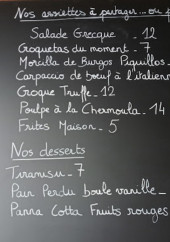 Nos assiettes à partager... ou p
Salade Grecque - 12
Croquetas du moment - 7
Morcilla de Burgos Piquillos -
Carpaccio de bœuf à l'italienn
Croque Truffe - 12
Poulpe à la Chermoula - 14
Frites Maison - 5
Nos desserts
Tiramisu - 7
Pain Perdu boule vanille -
Panna Cotta Fruits rouges